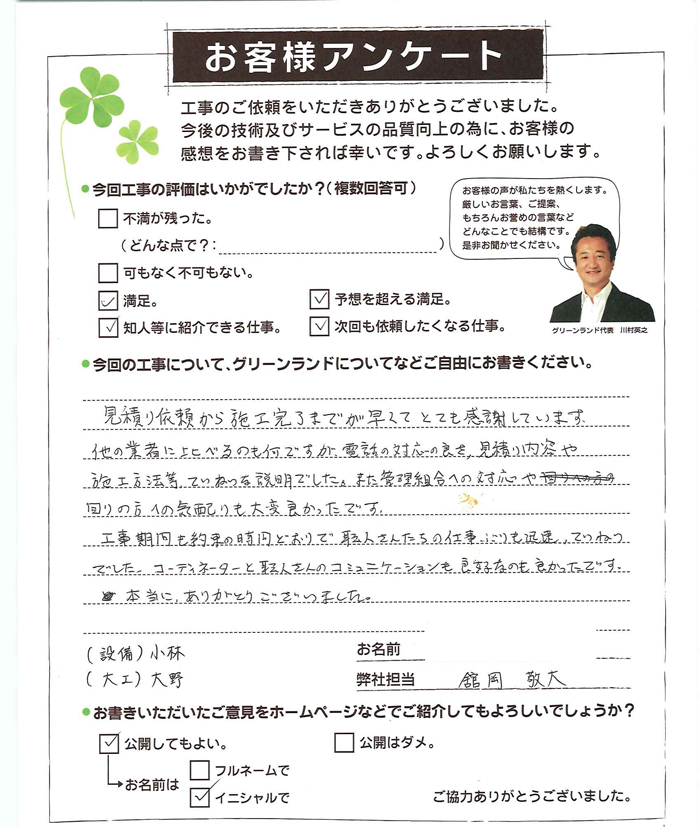 お客様アンケート
工事のご依頼をいただきありがとうございました。
今後の技術及びサービスの品質向上の為に、お客様の
感想をお書き下されば幸いです。よろしくお願いします。
●今回工事の評価はいかがでしたか?(複数回答可)
不満が残った。
(どんな点で?: )
可もなく不可もない。
満足。
予想を超える満足。
知人等に紹介できる仕事。
次回も依頼したくなる仕事。
お客様の声が私たちを熱くします。
厳しいお言葉、ご提案、
もちろんお誉めの言葉など
どんなことでも結構です。
是非お聞かせください。
グリーンランド代表 川村英之
●今回の工事について、グリーンランドについてなどご自由にお書きください。
見積り依頼から施工完了までが早くて とても感謝しています。
他の業者に比べるのも何ですが、電話の対応の良さ、見積り内容や
施工方法等、ていねいな説明でした。また管理組合への対応や
回りの方への気配りも大変良かったです。
工事期間も約束の時間どおりで職人さんたちの仕事ぶりも迅速、ていねい
でした。コーディネーターと職人さんのコミュニケーションも良好なのも良かったです。
本当に、ありがとうございました。
(設備) 小林
(大工) 大野
お名前
弊社担当 舘岡 敬大
●お書きいただいたご意見をホームページなどでご紹介してもよろしいでしょうか?
公開してもよい。
公開はダメ。
お名前は
フルネームで
イニシャルで
ご協力ありがとうございました。